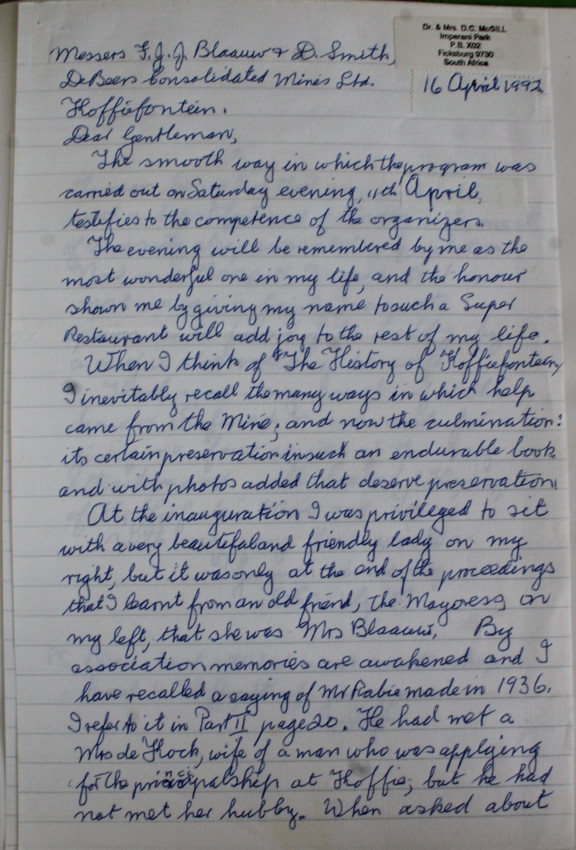 Dr. & Mrs. D.C. McGILL
Imperani Park
P.B. X02
Ficksburg 9730
South Africa
16 April 1992
Messers F.J.J. Blaauw & D. Smith,
De Beers Consolidated Mines Ltd.
Koffiefontein.
Dear Gentleman,
The smooth way in which the program was
carried out on Saturday evening, 11th April,
testifies to the competence of the organizers.
The evening will be remembered by me as the
most wonderful one in my life, and the honour
shown me by giving my name to such a Super
Restaurant will add joy to the rest of my life.
When I think of "The History of Koffiefontein,
I inevitably recall the many ways in which help
came from the Mine; and now the culmination:
its certain preservation in such an endurable book
and with photos added that deserve preservation.
At the inauguration I was privileged to sit
with a very beautiful and friendly lady on my
right, but it was only at the end of the proceedings
that I learnt from an old friend, the Mayoress, on
my left, that she was Mrs Blaauw. By
association memories are awakened and I
have recalled a saying of Mr Rabie made in 1936.
I refer to it in Part II page 20. He had met a
Mrs de Kock, wife of a man who was applying
for the principalship at Koffie, but he had
not met her hubby. When asked about